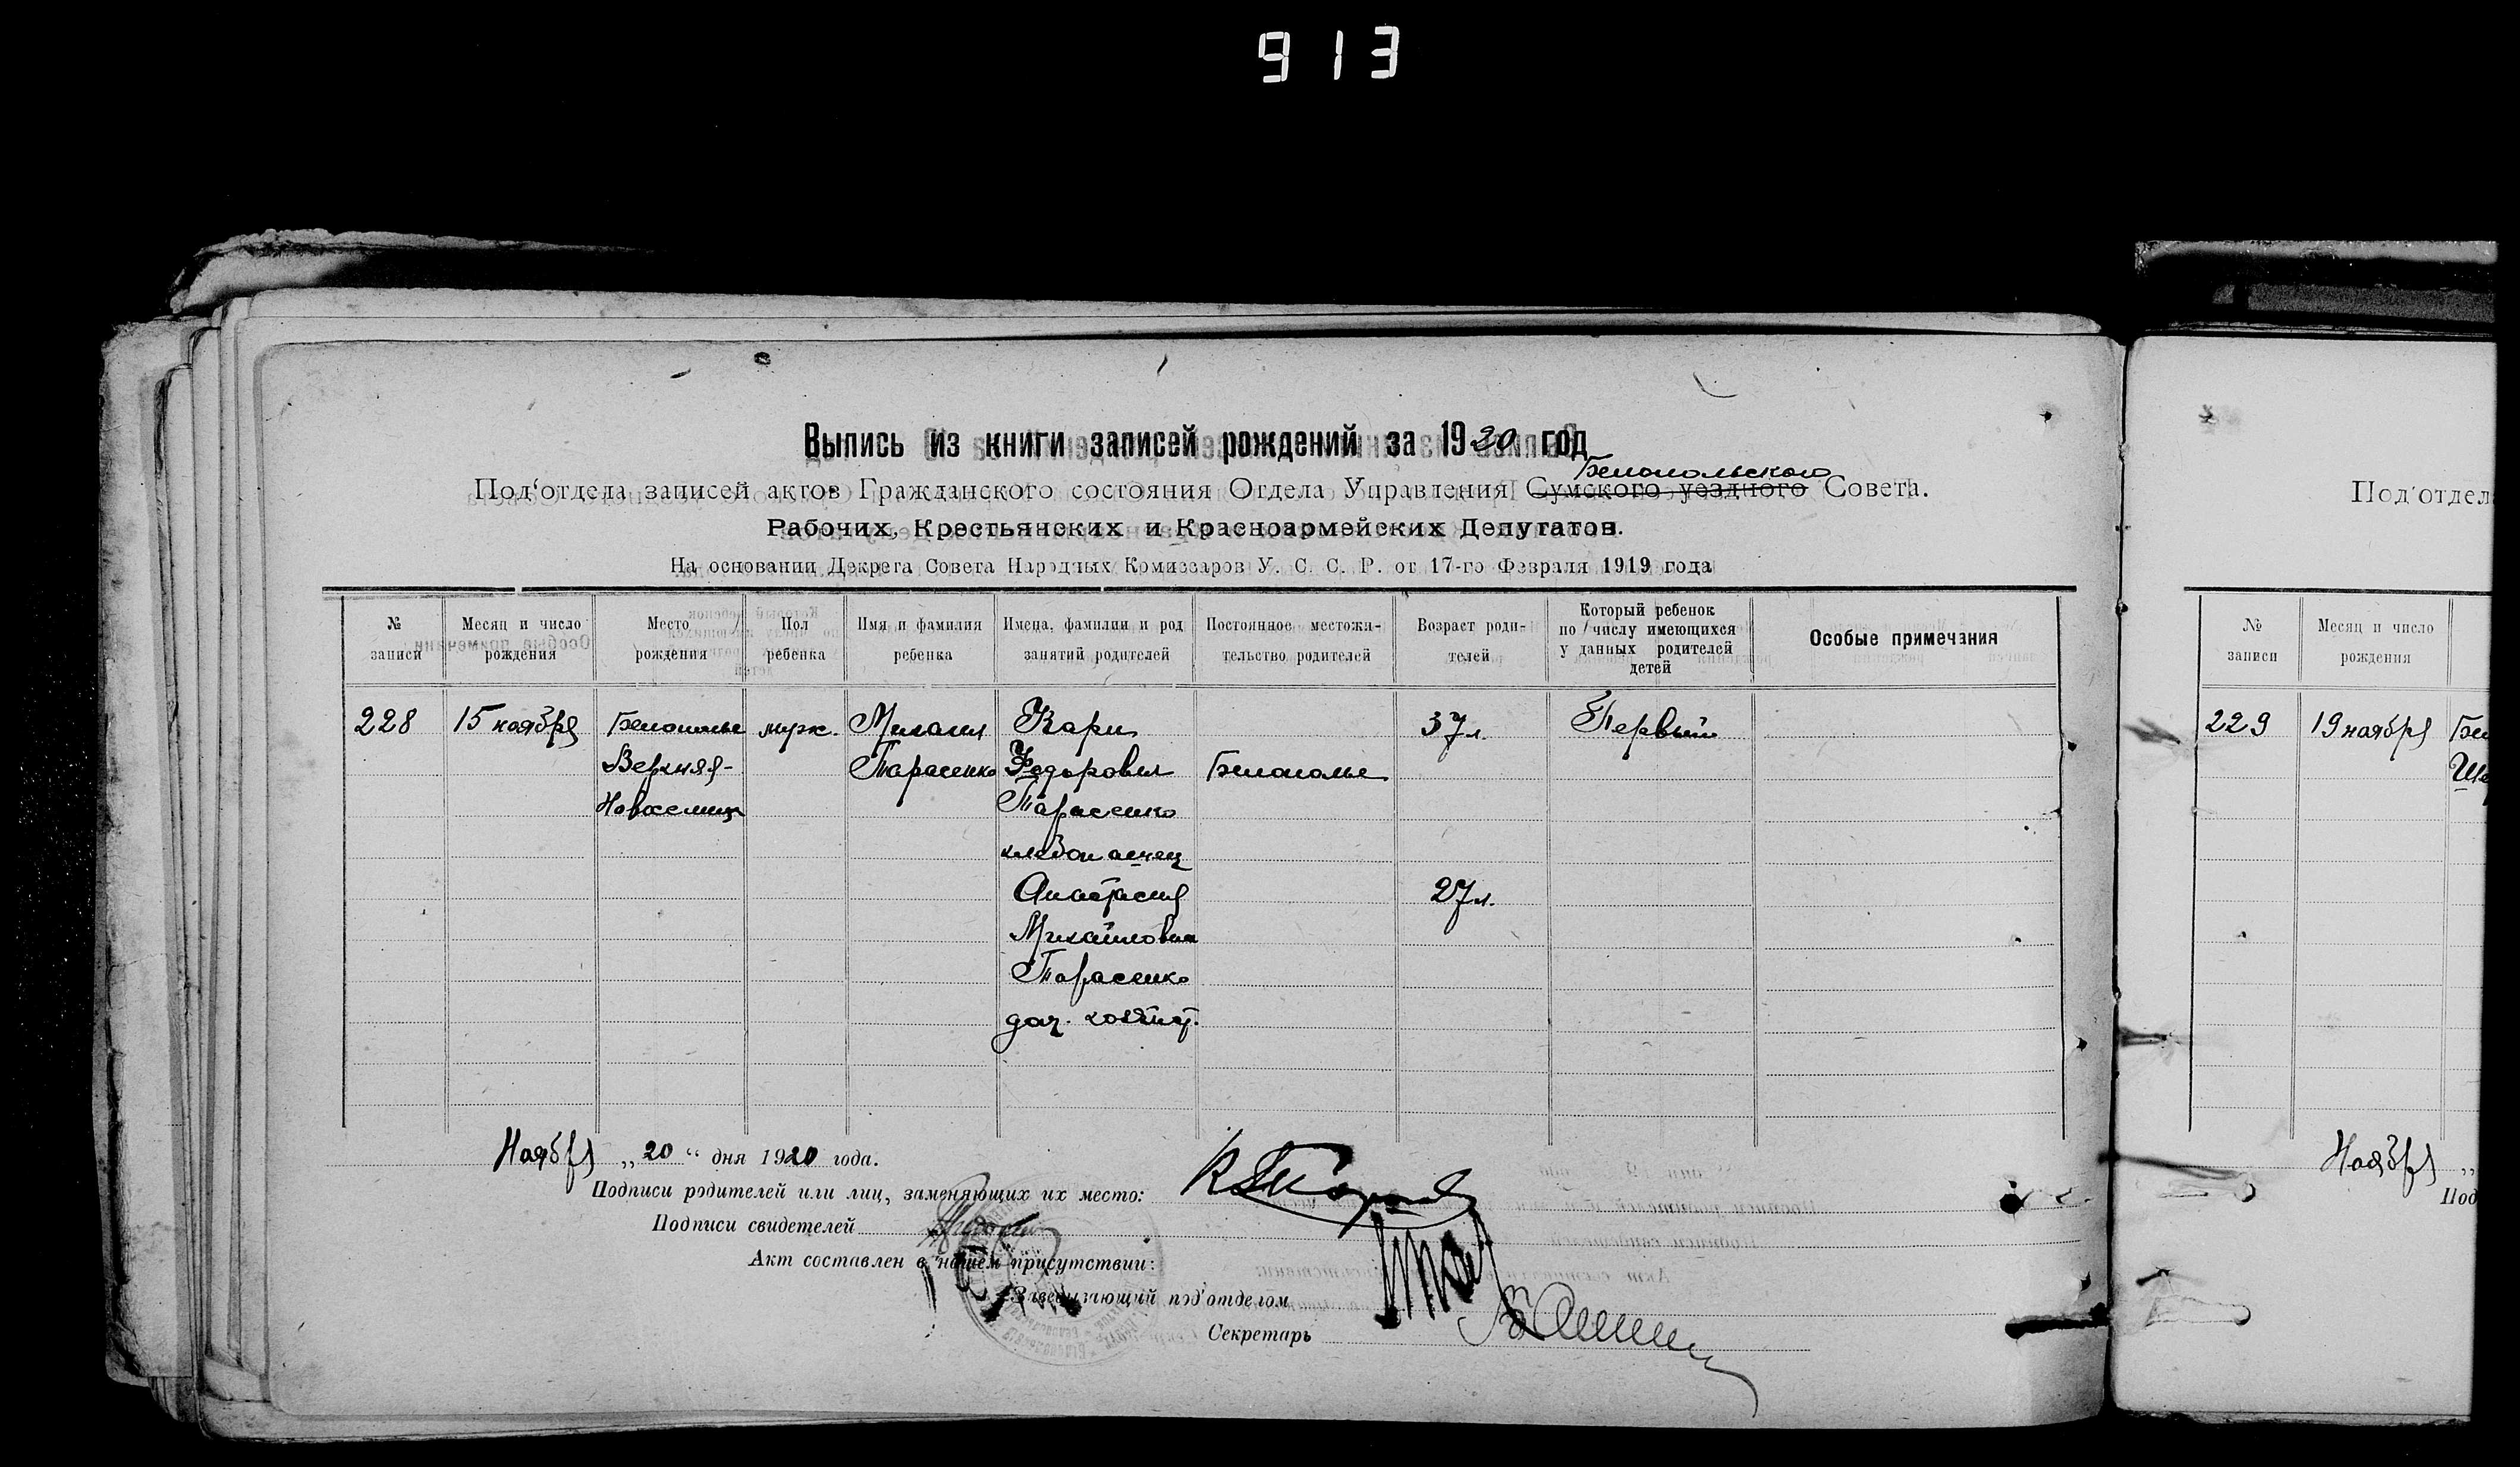 913
Выпись из книги записей рождений за 1920 год
Белопольского
Под‘отдела записей актов Гражданского состояния Отдела Управления Сумского уездного Совета.
Рабочих, Крестьянских и Красноармейских Депутатов.
На основании Декрета Совета Народных Комиссаров У. С. С. Р. от 17-го Февраля 1919 года
№ записи
Месяц и число рождения
Место рождения
Пол ребенка
Имя и фамилия ребенка
Имена, фамилии и род занятий родителей
Постоянное местожительство родителей
Возраст родителей
Который ребенок по числу имеющихся у данных родителей детей
Особые примечания
228
15 ноября
Белополье
Верхняя-
Новоселица
мужс.
Михаил
Тарасенко
Карп
Федорович
Тарасенко
хлебопашец
Анастасия
Михайловна
Тарасенко
дом. хозяйст.
Белополье
37 л.
27 л.
Первый
Ноября „20“ дня 1920 года.
Подписи родителей или лиц, заменяющих их место:
Подписи свидетелей
Акт составлен в нашем присутствии:
Заведывающий под‘отделом
Секретарь
Под‘отдел
№ записи
Месяц и число рождения
229
19 ноября
Бел
Ноября „
Под